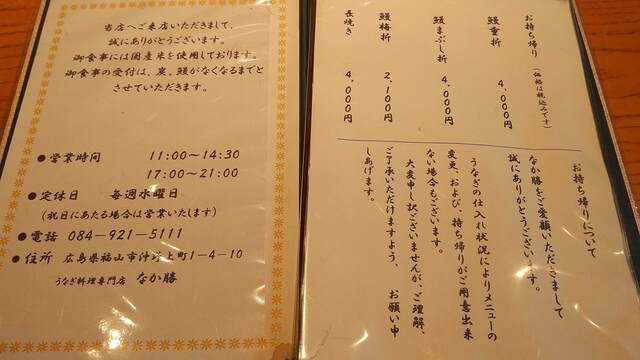 当店へご来店いただきまして、
誠にありがとうございます。
御食事には国産米を使用しております。
御食事の受付は、炭、鰻がなくなるまでと
させていただきます。
●営業時間 11:00～14:30
17:00～21:00
●定休日 毎週水曜日
(祝日にあたる場合は営業いたします)
●電話 084-921-5111
●住所 広島県福山市沖野上町1-4-10
うなぎ料理専門店 なか勝
お持ち帰り(価格は税込みです)
鰻重折 4,000円
鰻まぶし折 4,000円
鰻梅折 2,100円
長焼き 4,000円
お持ち帰りについて
なか勝をご愛顧いただきまして
誠にありがとうございます。
うなぎの仕入れ状況によりメニューの
変更、および、持ち帰りがご用意出来
ない場合もございます。
大変申し訳ございませんが、ご理解、
ご了承いただけますよう、お願い申
しあげます。